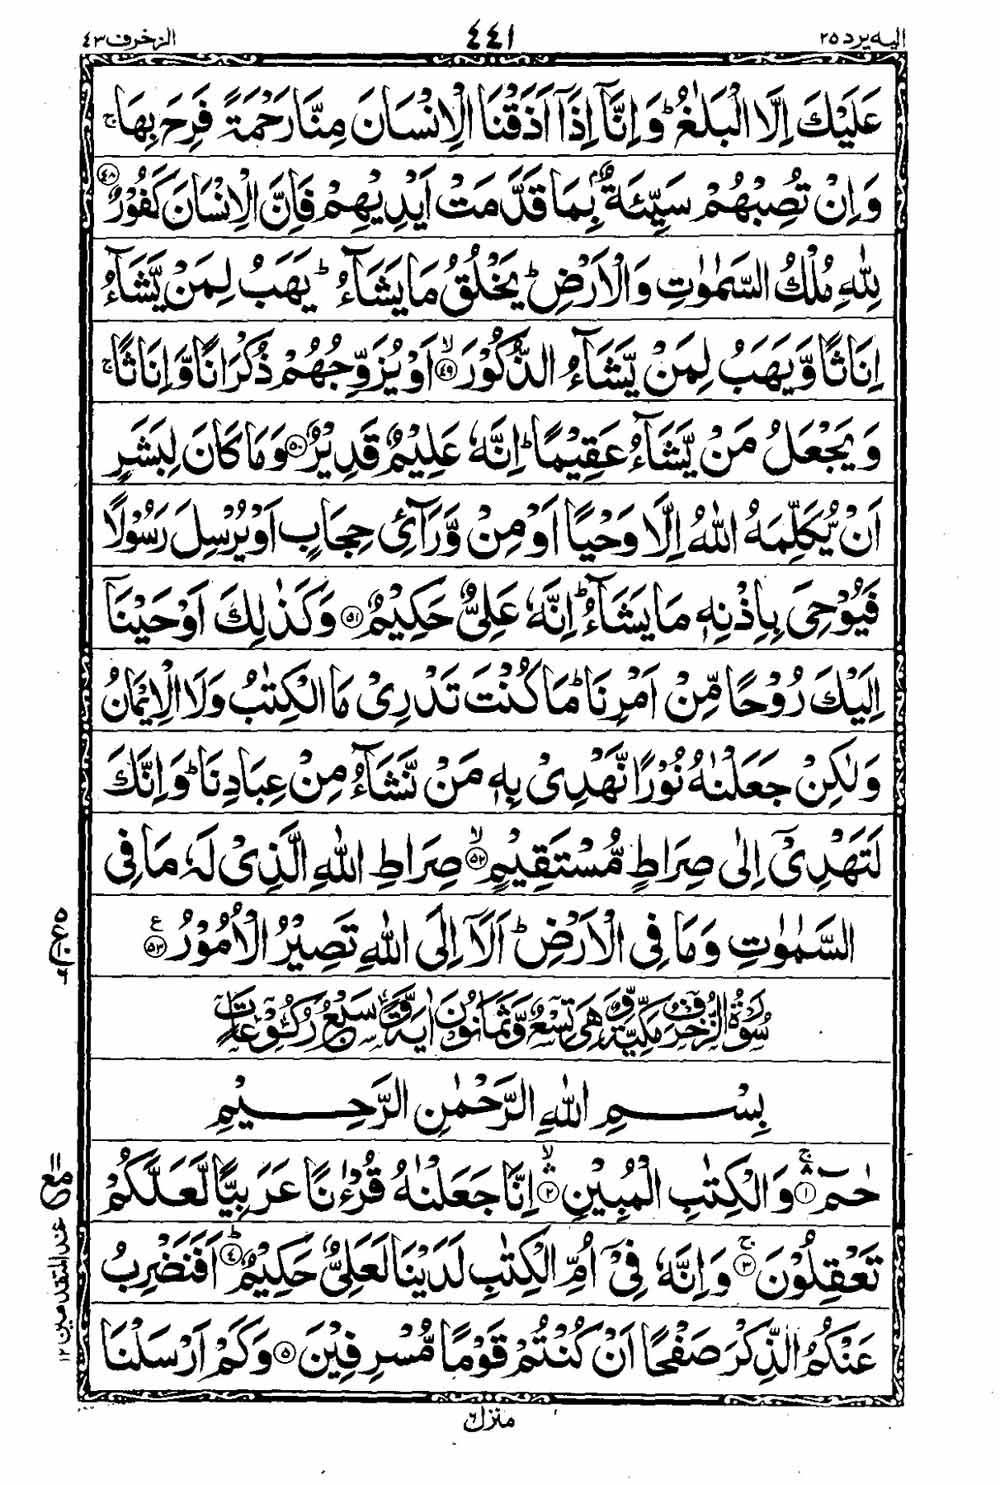 الیه یرد ۲۵
٤٤١
الزخرف ٤٣
عَلَیْكَ اِلَّا الْبَلٰغُ ؕ وَ اِنَّاۤ اِذَاۤ اَذَقْنَا الْاِنْسَانَ مِنَّا رَحْمَةً فَرِحَ بِهَا ۚ
وَ اِنْ تُصِبْهُمْ سَیِّئَةٌۢ بِمَا قَدَّمَتْ اَیْدِیْهِمْ فَاِنَّ الْاِنْسَانَ كَفُوْرٌ ﴿٤٨﴾
لِلّٰهِ مُلْكُ السَّمٰوٰتِ وَ الْاَرْضِ ؕ یَخْلُقُ مَا یَشَآءُ ؕ یَهَبُ لِمَنْ یَّشَآءُ
اِنَاثًا وَّ یَهَبُ لِمَنْ یَّشَآءُ الذُّكُوْرَ ﴿٤٩﴾ۙ اَوْ یُزَوِّجُهُمْ ذُكْرَانًا وَّ اِنَاثًا ۚ
وَ یَجْعَلُ مَنْ یَّشَآءُ عَقِیْمًا ؕ اِنَّهٗ عَلِیْمٌ قَدِیْرٌ ﴿٥٠﴾ وَ مَا كَانَ لِبَشَرٍ
اَنْ یُّكَلِّمَهُ اللّٰهُ اِلَّا وَحْیًا اَوْ مِنْ وَّرَآئِ حِجَابٍ اَوْ یُرْسِلَ رَسُوْلًا
فَیُوْحِیَ بِاِذْنِهٖ مَا یَشَآءُ ؕ اِنَّهٗ عَلِیٌّ حَكِیْمٌ ﴿٥١﴾ وَ كَذٰلِكَ اَوْحَیْنَاۤ
اِلَیْكَ رُوْحًا مِّنْ اَمْرِنَا ؕ مَا كُنْتَ تَدْرِیْ مَا الْكِتٰبُ وَ لَا الْاِیْمَانُ
وَ لٰكِنْ جَعَلْنٰهُ نُوْرًا نَّهْدِیْ بِهٖ مَنْ نَّشَآءُ مِنْ عِبَادِنَا ؕ وَ اِنَّكَ
لَتَهْدِیْۤ اِلٰی صِرَاطٍ مُّسْتَقِیْمٍ ﴿٥٢﴾ۙ صِرَاطِ اللّٰهِ الَّذِیْ لَهٗ مَا فِی
السَّمٰوٰتِ وَ مَا فِی الْاَرْضِ ؕ اَلَاۤ اِلَی اللّٰهِ تَصِیْرُ الْاُمُوْرُ ﴿٥٣﴾ ع
سُوْرَةُ الزُّخْرُفِ مَكِّیَّةٌ وَّ هِیَ تِسْعٌ وَّ ثَمَانُوْنَ اٰیَةً وَّ سَبْعُ رُكُوْعَاتٍ
بِسْمِ اللّٰهِ الرَّحْمٰنِ الرَّحِیْمِ
حٰمٓ ﴿١﴾ۚۛ وَ الْكِتٰبِ الْمُبِیْنِ ﴿٢﴾ۙۛ اِنَّا جَعَلْنٰهُ قُرْءٰنًا عَرَبِیًّا لَّعَلَّكُمْ
تَعْقِلُوْنَ ﴿٣﴾ۚ وَ اِنَّهٗ فِیْۤ اُمِّ الْكِتٰبِ لَدَیْنَا لَعَلِیٌّ حَكِیْمٌ ﴿٤﴾ؕ اَفَنَضْرِبُ
عَنْكُمُ الذِّكْرَ صَفْحًا اَنْ كُنْتُمْ قَوْمًا مُّسْرِفِیْنَ ﴿٥﴾ وَ كَمْ اَرْسَلْنَا
مع
عند المتقدمین ١٢
منزل ٦